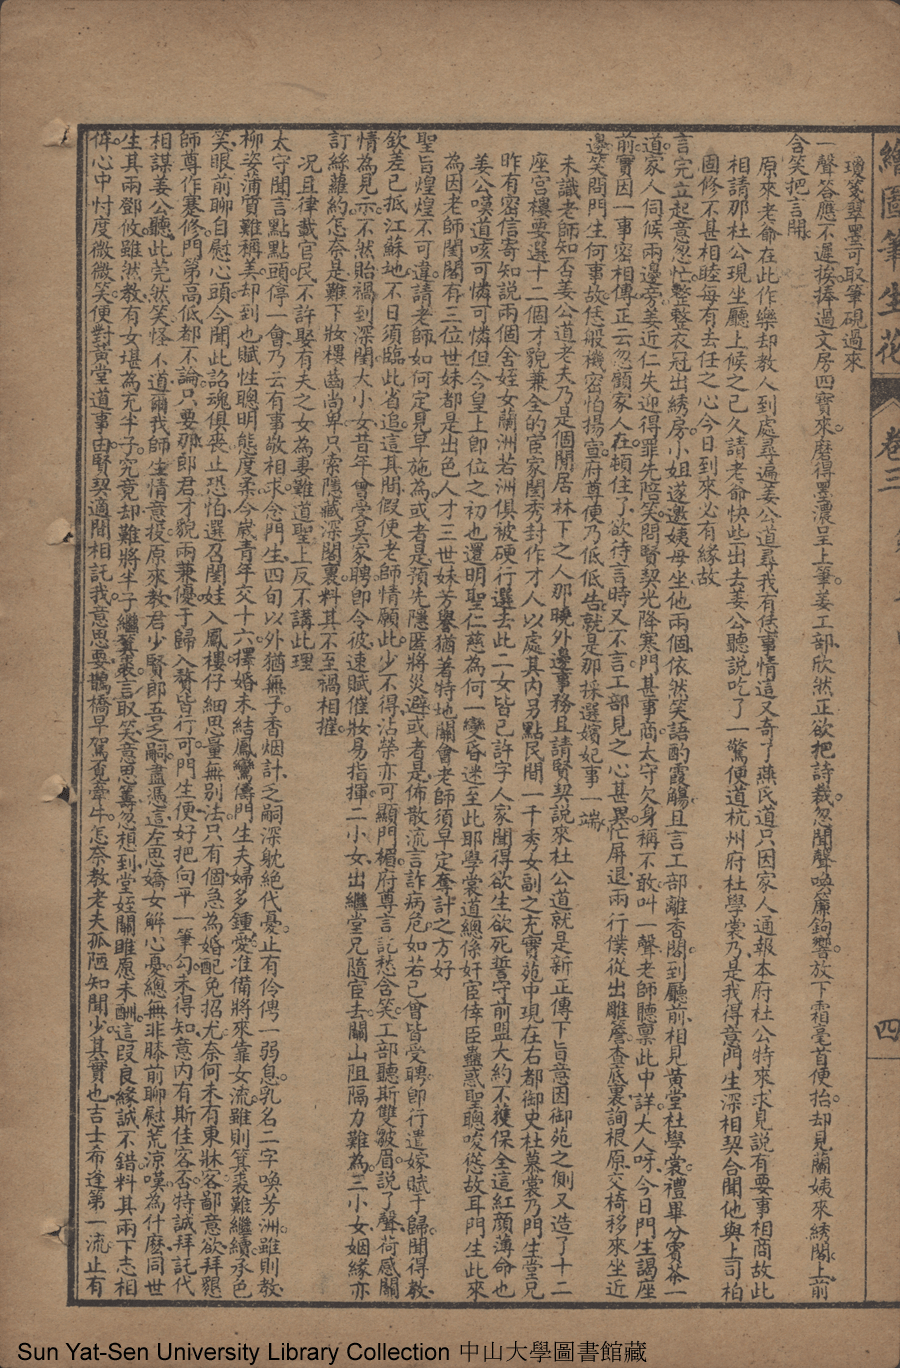 繪圖筆生花
卷三
四
瓊箋翠墨可取筆硯過來
一聲答應不遲挨捧過文房四寶來磨得墨濃呈上筆姜工部欣然正欲把詩裁忽聞聲喚簾鉤響放下霜毫首便抬却見蘭姨來綉閣上前
含笑把言開
原來老爺在此作樂却教人到處尋遍姜公道尋我有佚事情這又奇了燕氏道只因家人通報本府杜公特來求見說有要事相商故此
相請那杜公現坐廳上候之已久請老爺快些出去姜公聽說吃了一驚便道杭州府杜學裳乃是我得意門生深相契合聞他與上司柏
固修不甚相睦每有去任之心今日到來必有緣故
言完立起意忽忙整整衣冠出綉房小姐遂邀姨母坐他兩個依然笑語酌霞觴且言工部離香閣到廳前相見黃堂杜學裳禮畢分賓茶一
道家人伺候兩邊旁姜近仁失迎得罪先陪笑問賢契光降寒門甚事商太守欠身稱不敢叫一聲老師聽禀此中詳大人呀今日門生謁座
前實因一事密相傳正云忽顧家人在頓住了欲待言時又不言工部見之心甚異忙屏退兩行僕從出雕簷查底裏詢根原交椅移來坐近
邊笑問門生何事故恁般機密怕揚宣府尊便乃低低告就是那採選嬪妃事一端
未識老師知否姜公道老夫乃是個閒居林下之人那曉外邊事務且請賢契說來杜公道就是新正傳下旨意因御苑之側又造了十二
座宮樓要選十二個才貌兼全的宦家閨秀封作才人以處其內另點民間一千秀女副之充實苑中現在右都御史杜慕裳乃門生堂兄
昨有密信寄知說兩個舍姪女蘭洲若洲俱被硬行選去此二女皆已許字人家聞得欲生欲死誓守前盟大約不獲保全這紅顏薄命也
姜公嘆道咳可憐可憐但今皇上卽位之初也還明聖仁慈為何一變昏迷至此耶學裳道總係奸宦倖臣蠱惑聖聰唆慫故耳門生此來
為因老師閨閣有三位世妹都是出色人才三世妹芳譽猶著特地關會老師須早定奪計之方好
聖旨煌煌不可違請老師如何定見早施為或者是預先隱匿將災避或者是佈散流言詐病危如若已曾皆受聘卽行遣嫁賦于歸聞得教
欽差已抵江蘇地不日須臨此省追這其間假使老師情願此少不得沾榮亦可顯門楣府尊言訖愁含笑工部聽斯雙皺眉說了聲荷感關
情為見示不然貽禍到深閨大小女昔年曾受吳家聘卽令彼速賦催妝易指揮二小女出繼堂兄隨宦去關山阻隔力難為三小女姻緣亦
訂絲蘿約怎奈是難下妝樓齒尚卑只索隱藏深閣裏料其不至禍相摧
况且律載官民不許娶有夫之女為妻難道聖上反不講此理
太守聞言點點頭停一會乃云有事敬相求念門生四旬以外猶無子香烟計之嗣深躭絕代憂止有伶俜一弱息乳名二字喚芳洲雖則教
柳姿蒲質難稱美却到也賦性聰明態度柔今歲青年交十六擇婚未結鳳鸞儔門生夫婦多鍾愛准備將來靠女流雖則箕裘難繼續承色
笑眼前聊自慰心頭今聞此詔魂俱喪止恐怕選召閨娃入鳳樓仔細思量無別法只有個急為婚配免招尤奈何未有東牀客鄙意欲拜懇
師尊作蹇修門第高低都不論只要那郎君才貌兩兼優于歸入贅皆行可門生便好把向平一筆勾未得知意內有斯佳客否特誠拜託代
相謀姜公聽此莞然笑怪不道爾我師生情意投原來教君少賢郎吾乏嗣盡憑這左思嬌女解心憂總無非膝前聊慰荒涼嘆為什麼同世
生其兩鄧攸雖然教有女堪為充半子究竟却難將半子繼箕裘言取笑意思籌忽想到堂姪關雎愿未酬這段良緣誠不錯料其兩下志相
侔心中忖度微微笑便對黃堂道事由賢契適間相託我意思要鵲橋早駕覓牽牛怎奈教老夫孤陋知聞少其實也吉士希逢第一流止有
Sun Yat-Sen University Library Collection 中山大學圖書館藏